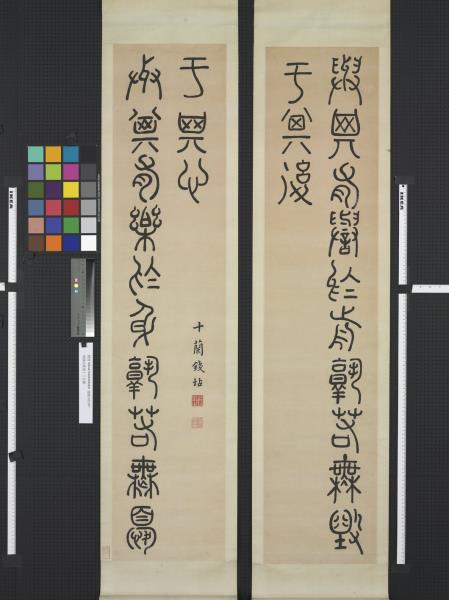 與其有譽於前孰若無毀
于其後
與其有樂於身孰若無憂
于其心
十蘭錢坫